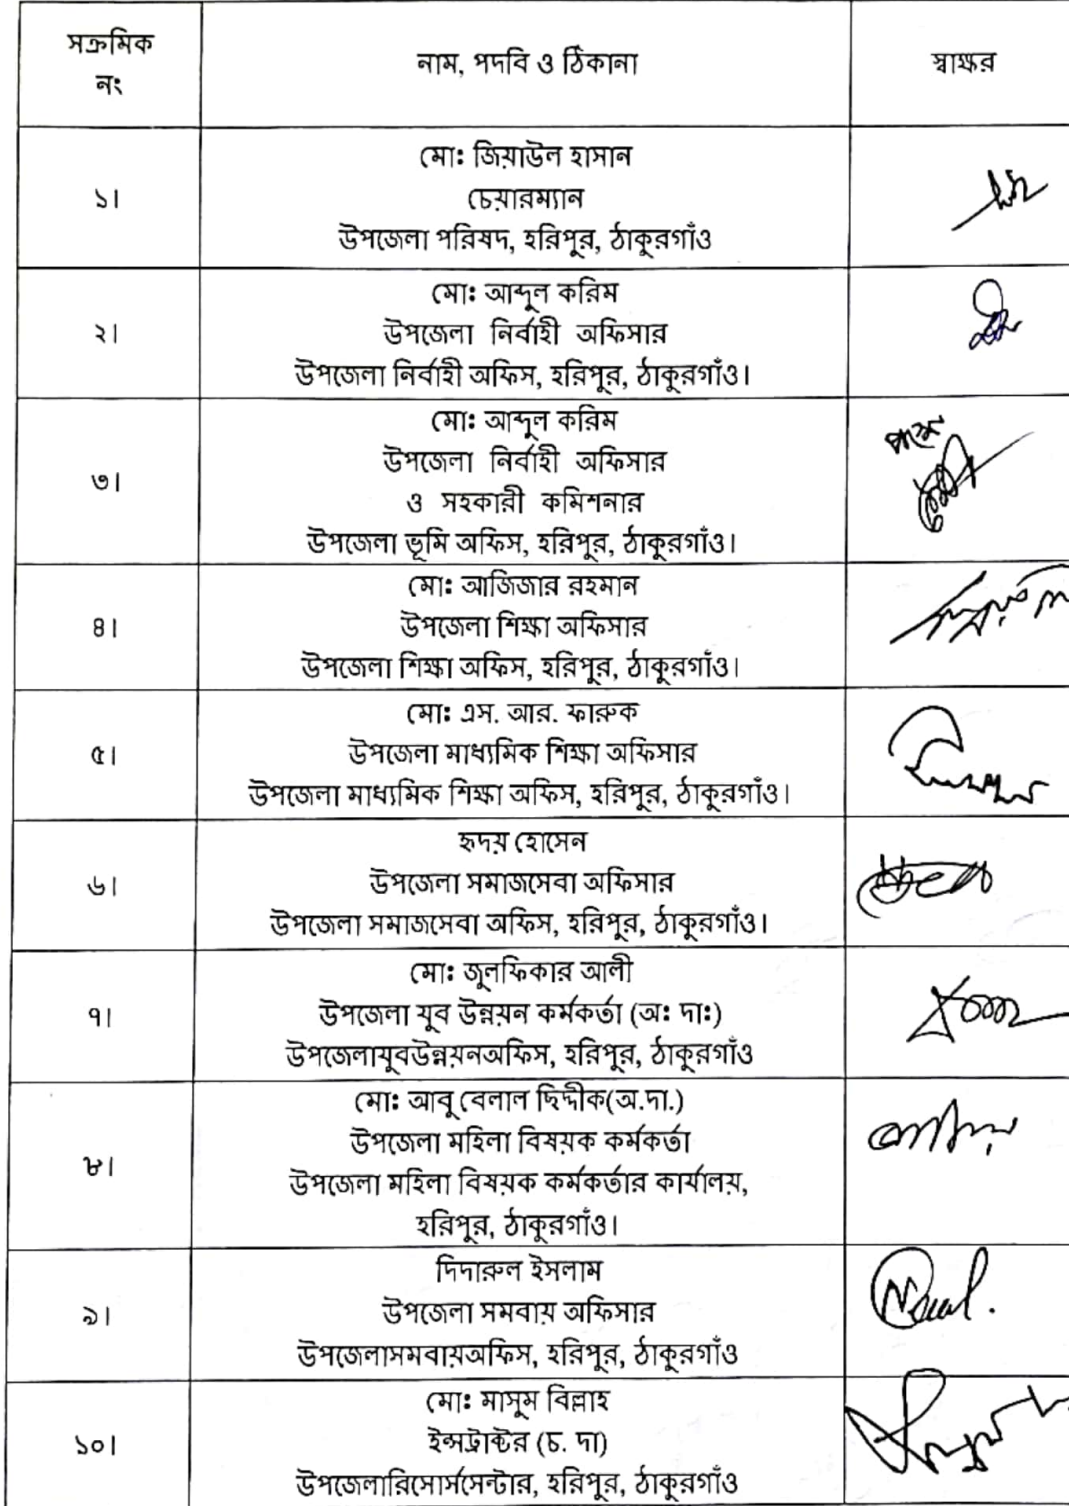 সক্রমিক
নং
নাম, পদবি ও ঠিকানা
স্বাক্ষর
১।
মো: জিয়াউল হাসান
চেয়ারম্যান
উপজেলা পরিষদ, হরিপুর, ঠাকুরগাঁও
২।
মো: আব্দুল করিম
উপজেলা নির্বাহী অফিসার
উপজেলা নির্বাহী অফিস, হরিপুর, ঠাকুরগাঁও।
৩।
মো: আব্দুল করিম
উপজেলা নির্বাহী অফিসার
ও সহকারী কমিশনার
উপজেলা ভূমি অফিস, হরিপুর, ঠাকুরগাঁও।
৪।
মো: আজিজার রহমান
উপজেলা শিক্ষা অফিসার
উপজেলা শিক্ষা অফিস, হরিপুর, ঠাকুরগাঁও।
৫।
মো: এস. আর. ফারুক
উপজেলা মাধ্যমিক শিক্ষা অফিসার
উপজেলা মাধ্যমিক শিক্ষা অফিস, হরিপুর, ঠাকুরগাঁও।
৬।
হৃদয় হোসেন
উপজেলা সমাজসেবা অফিসার
উপজেলা সমাজসেবা অফিস, হরিপুর, ঠাকুরগাঁও।
৭।
মো: জুলফিকার আলী
উপজেলা যুব উন্নয়ন কর্মকর্তা (অ: দা:)
উপজেলাযুবউন্নয়নঅফিস, হরিপুর, ঠাকুরগাঁও
৮।
মো: আবু বেলাল ছিদ্দীক(অ.দা.)
উপজেলা মহিলা বিষয়ক কর্মকর্তা
উপজেলা মহিলা বিষয়ক কর্মকর্তার কার্যালয়,
হরিপুর, ঠাকুরগাঁও।
৯।
দিদারুল ইসলাম
উপজেলা সমবায় অফিসার
উপজেলাসমবায়অফিস, হরিপুর, ঠাকুরগাঁও
১০।
মো: মাসুম বিল্লাহ
ইন্সট্রাক্টর (চ. দা)
উপজেলারিসোর্সসেন্টার, হরিপুর, ঠাকুরগাঁও